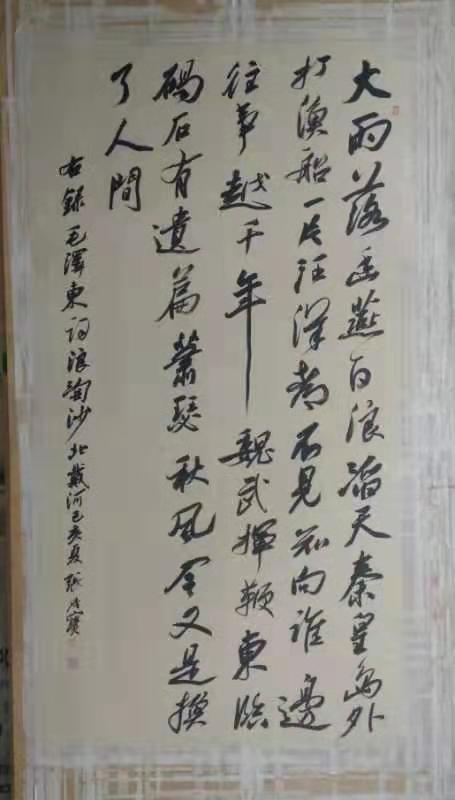 大雨落幽燕白浪滔天秦皇島外
打漁船一片汪洋都不見知向誰邊
往事越千年魏武揮鞭東臨
碣石有遺篇蕭瑟秋風今又是換
了人間
右錄毛澤東詞浪淘沙北戴河己亥夏張